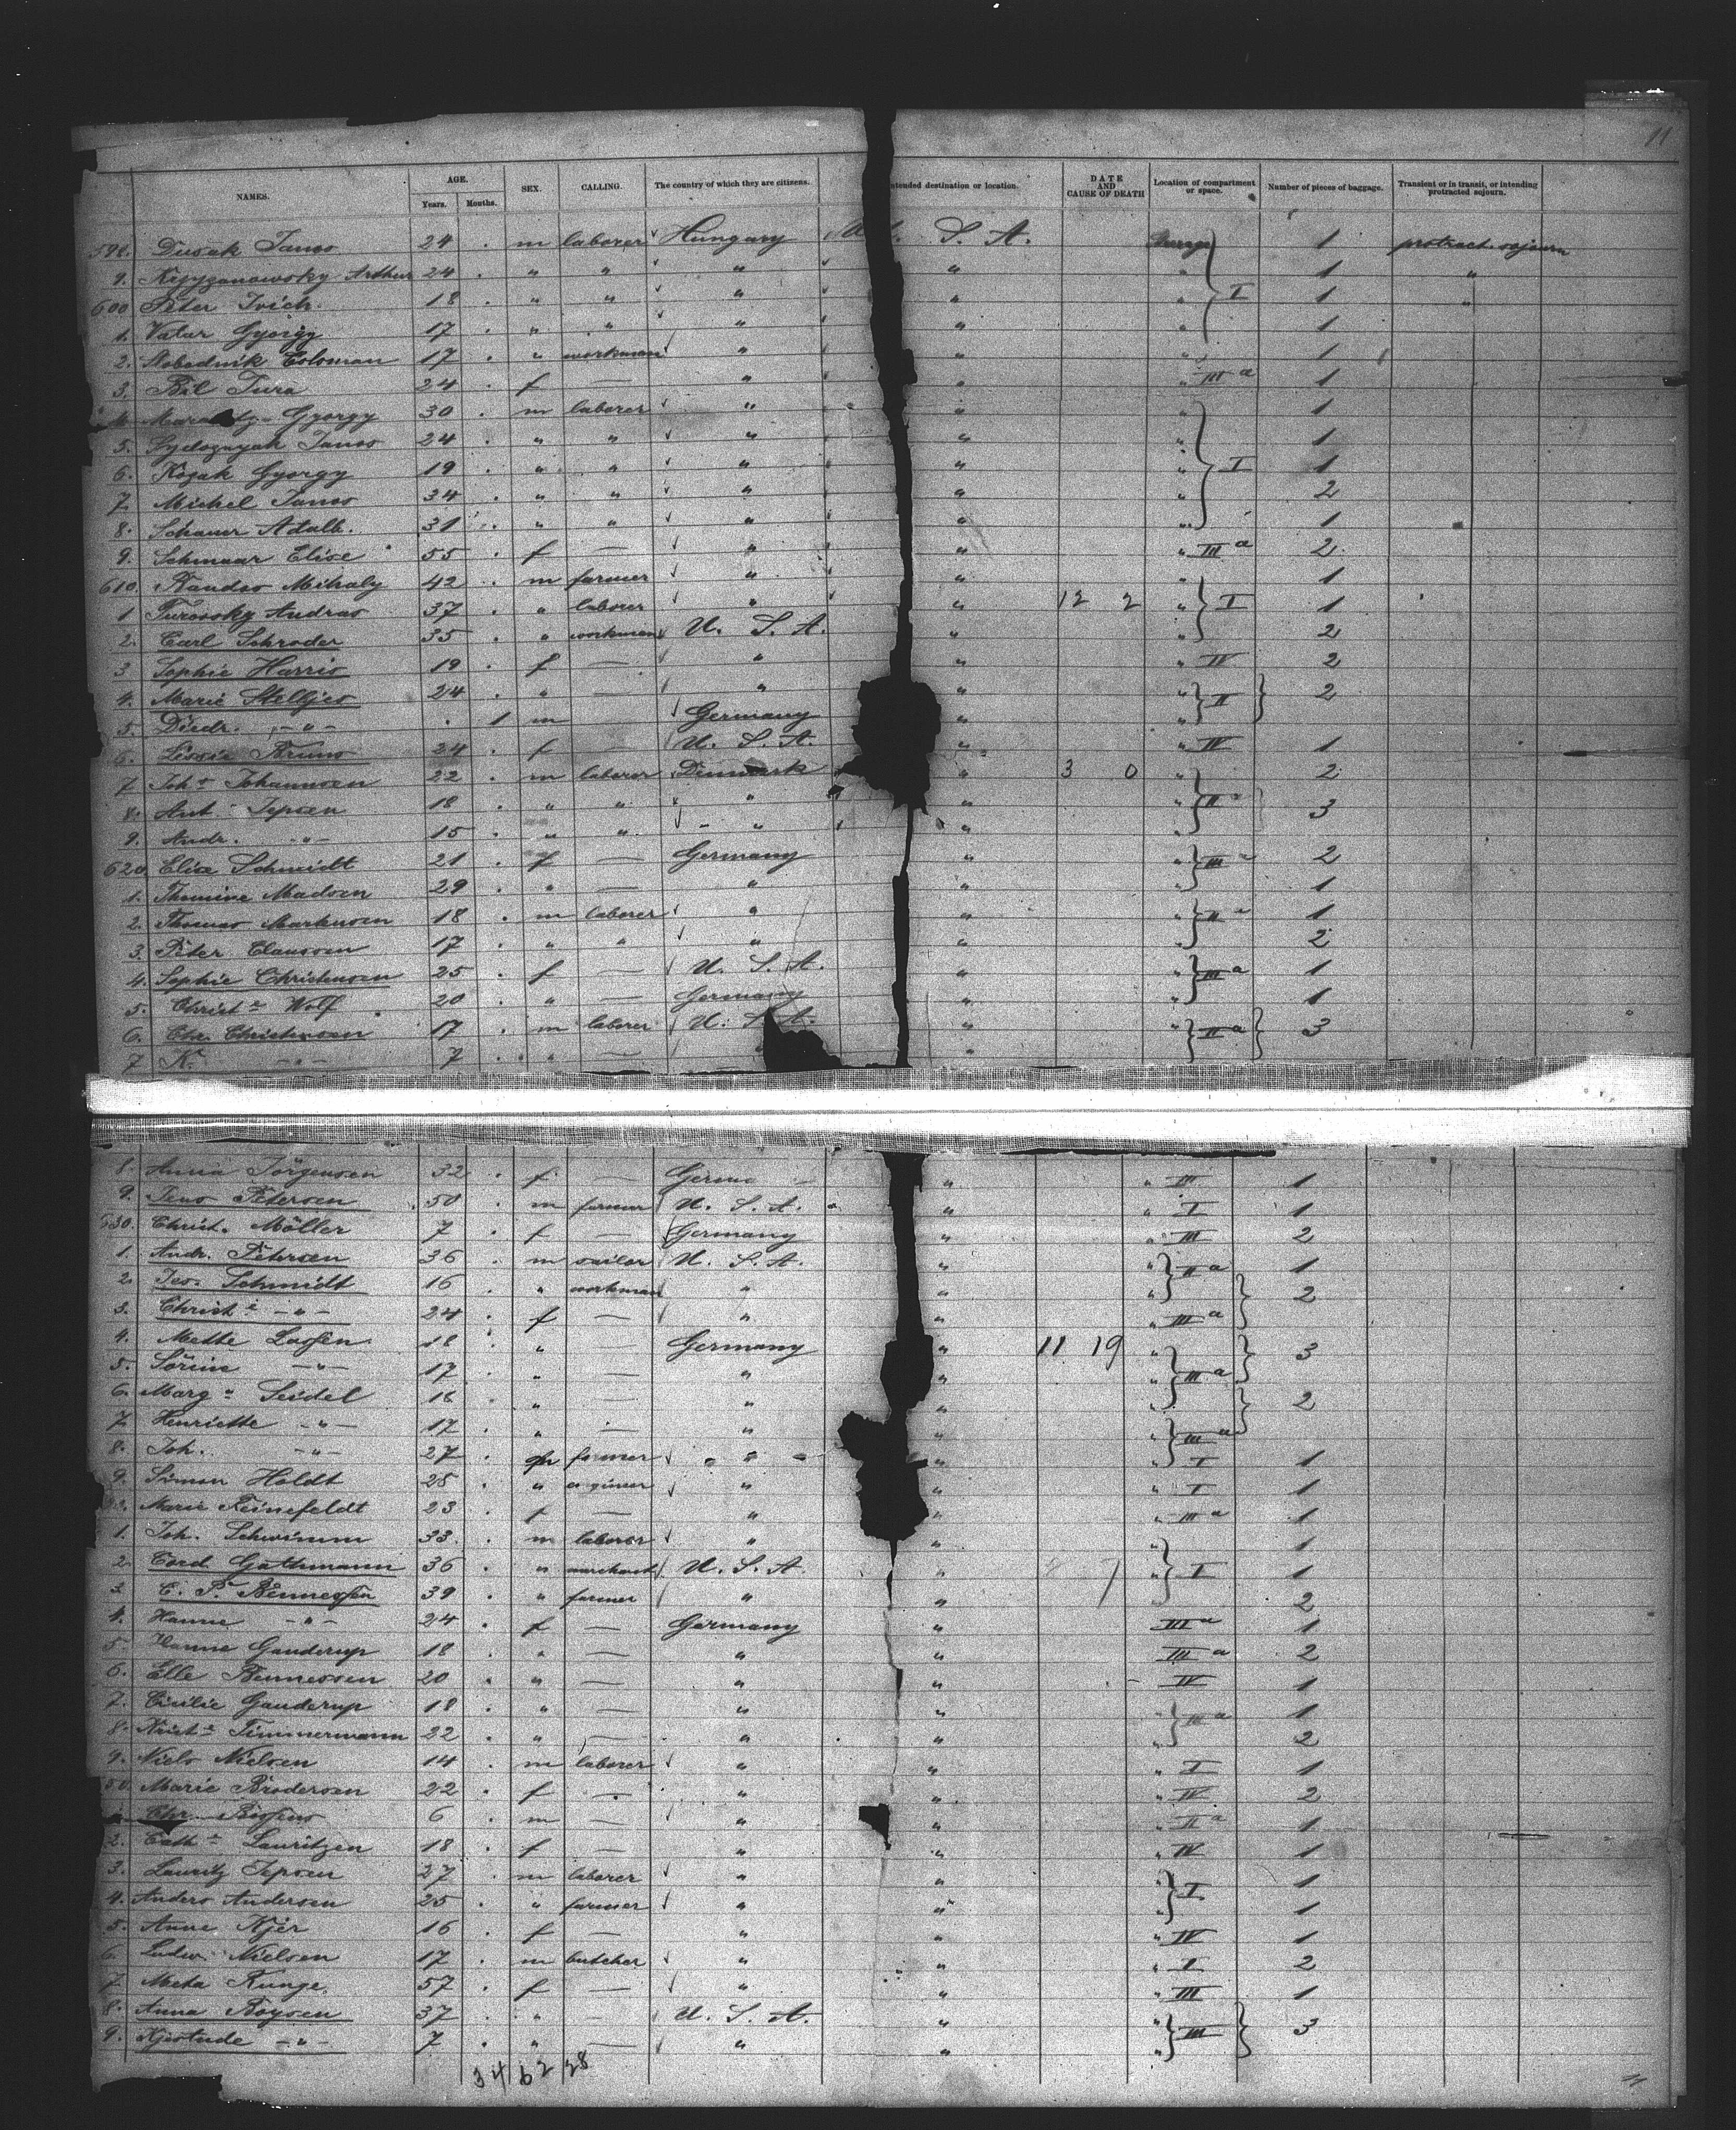 11
NAMES. AGE. Years. Months. SEX. CALLING. The country of which they are citizens. ntended destination or location. DATE AND CAUSE OF DEATH Location of compartment or space. Number of pieces of baggage. Transient or in transit, or intending protracted sojourn.
598. Dusak Janos 24 . m laborer Hungary U. S. A. 1 protract. sojourn
9. Arthur 24 . " " " " " 1 "
600 Peter 18 . " " " " " I 1 "
1. Vatur György 17 . " " " " 1
2. Coloman 17 . " workman " " " 1
3. Bil Jura 24 . f — " " " IIIa 1
4. György 30 . m laborer " " " 1
5. Janos 24 . " " " " " 1
6. Kozak György 19 . " " " " " I 1
7. Michel Janos 34 . " " " " " 2
8. Schauer Adalb. 31 . " " " " " 1
9. Schmaar Elise 55 . f — " " " IIIa 2
610. Mihaly 42 . m farmer " " " 1
1 Turovsky Andras 37 . " laborer " " 12 2 " I 1
2. Carl Schroder 35 . " workman U. S. A. " " 2
3 Sophie Harris 19 . f — " " " IV 2
4. Marie Stelljes 24 . " — " " " II 2
5. Diedr. -"- . 1 m Germany " "
6. Lissie Bruns 24 . f — U. S. A. " " IV 1
7. Johs Johannsen 22 . m laborer Denmark " 3 0 " 2
8. Ant. Jepsen 18 . " " " " " IIa 3
9. Andr. -"- 15 . " " " " "
620. Elise Schmidt 21 . f — Germany " " IIIa 2
1. Thomine Madsen 29 . " — " " " 1
2. Thomas Markusen 18 . m laborer " " " IIa 1
3. Peter Claussen 17 . " " " " " 2
4. Sophie Christensen 25 . f — U. S. A. " " IIIa 1
5. Christe Wolf 20 . " — Germany " " 1
6. Chr. Christensen 17 . m laborer U. S. A. " " IIa 3
7 K. -"- 7 . " — " "
8. Anna Jörgensen 32 . f — Germa " " III 1
9. Jens Petersen 50 . m farmer U. S. A. " " I 1
630. Christ. Möller 7 . f — Germany " " III 2
1. Andr. Petersen 36 . m sailor U. S. A. " " IIa 1
2. Jes. Schmidt 16 . " workman " " " 2
3. Christe -"- 24 . f — " " " IIIa
4. Mette Lassen 18 . " — Germany " 11 19 " 3
5. Sörine -"- 17 . " — " " " IIIa
6. Marga Seidel 18 . " — " " " 2
7. Henriette -"- 17 . " — " " " IIIa
8. Joh. -"- 27 . m farmer " " I 1
9. Simon Holdt 25 . " engineer " " " I 1
Marie Reinefeldt 23 . f — " " " IIIa 1
1. Joh. Schwimm 33 . m laborer " " " 1
2. Cord Gathmann 36 . " merchant U. S. A. " 7 " I 1
3. C. P. Bennessen 39 . " farmer " " " 2
4. Hanne -"- 24 . f — Germany " IIIa 1
5 Hanne Gauderup 18 . " — " " IIIa 2
6. Elle Bennessen 20 . " — " " - IV 1
7. Cicilie Gauderup 18 . " — " " " IIIa 1
8. Timmermann 22 . " — " " " 2
9. Niels Nielsen 14 . m laborer " " " I 1
50. Marie Brodersen 22 . f — " " " IV 2
Chr. 6 . m — " " " IIa 1
2. Cathe Lauritzen 18 . f — " " " IV 1
3. Lauritz Jepsen 27 . m laborer " " " I 1
4. Anders Andersen 25 . " farmer " " " 1
5. Anne Kjer 16 . f — " " " IV 1
6. Ludw. Nielsen 17 . m butcher " " " I 2
7 Meta Runge. 57 . f — " " " III 1
8. Anna Boysen 37 . " — U. S. A. " " III 3
9. -"- 7 . " — " " "
34 62 28